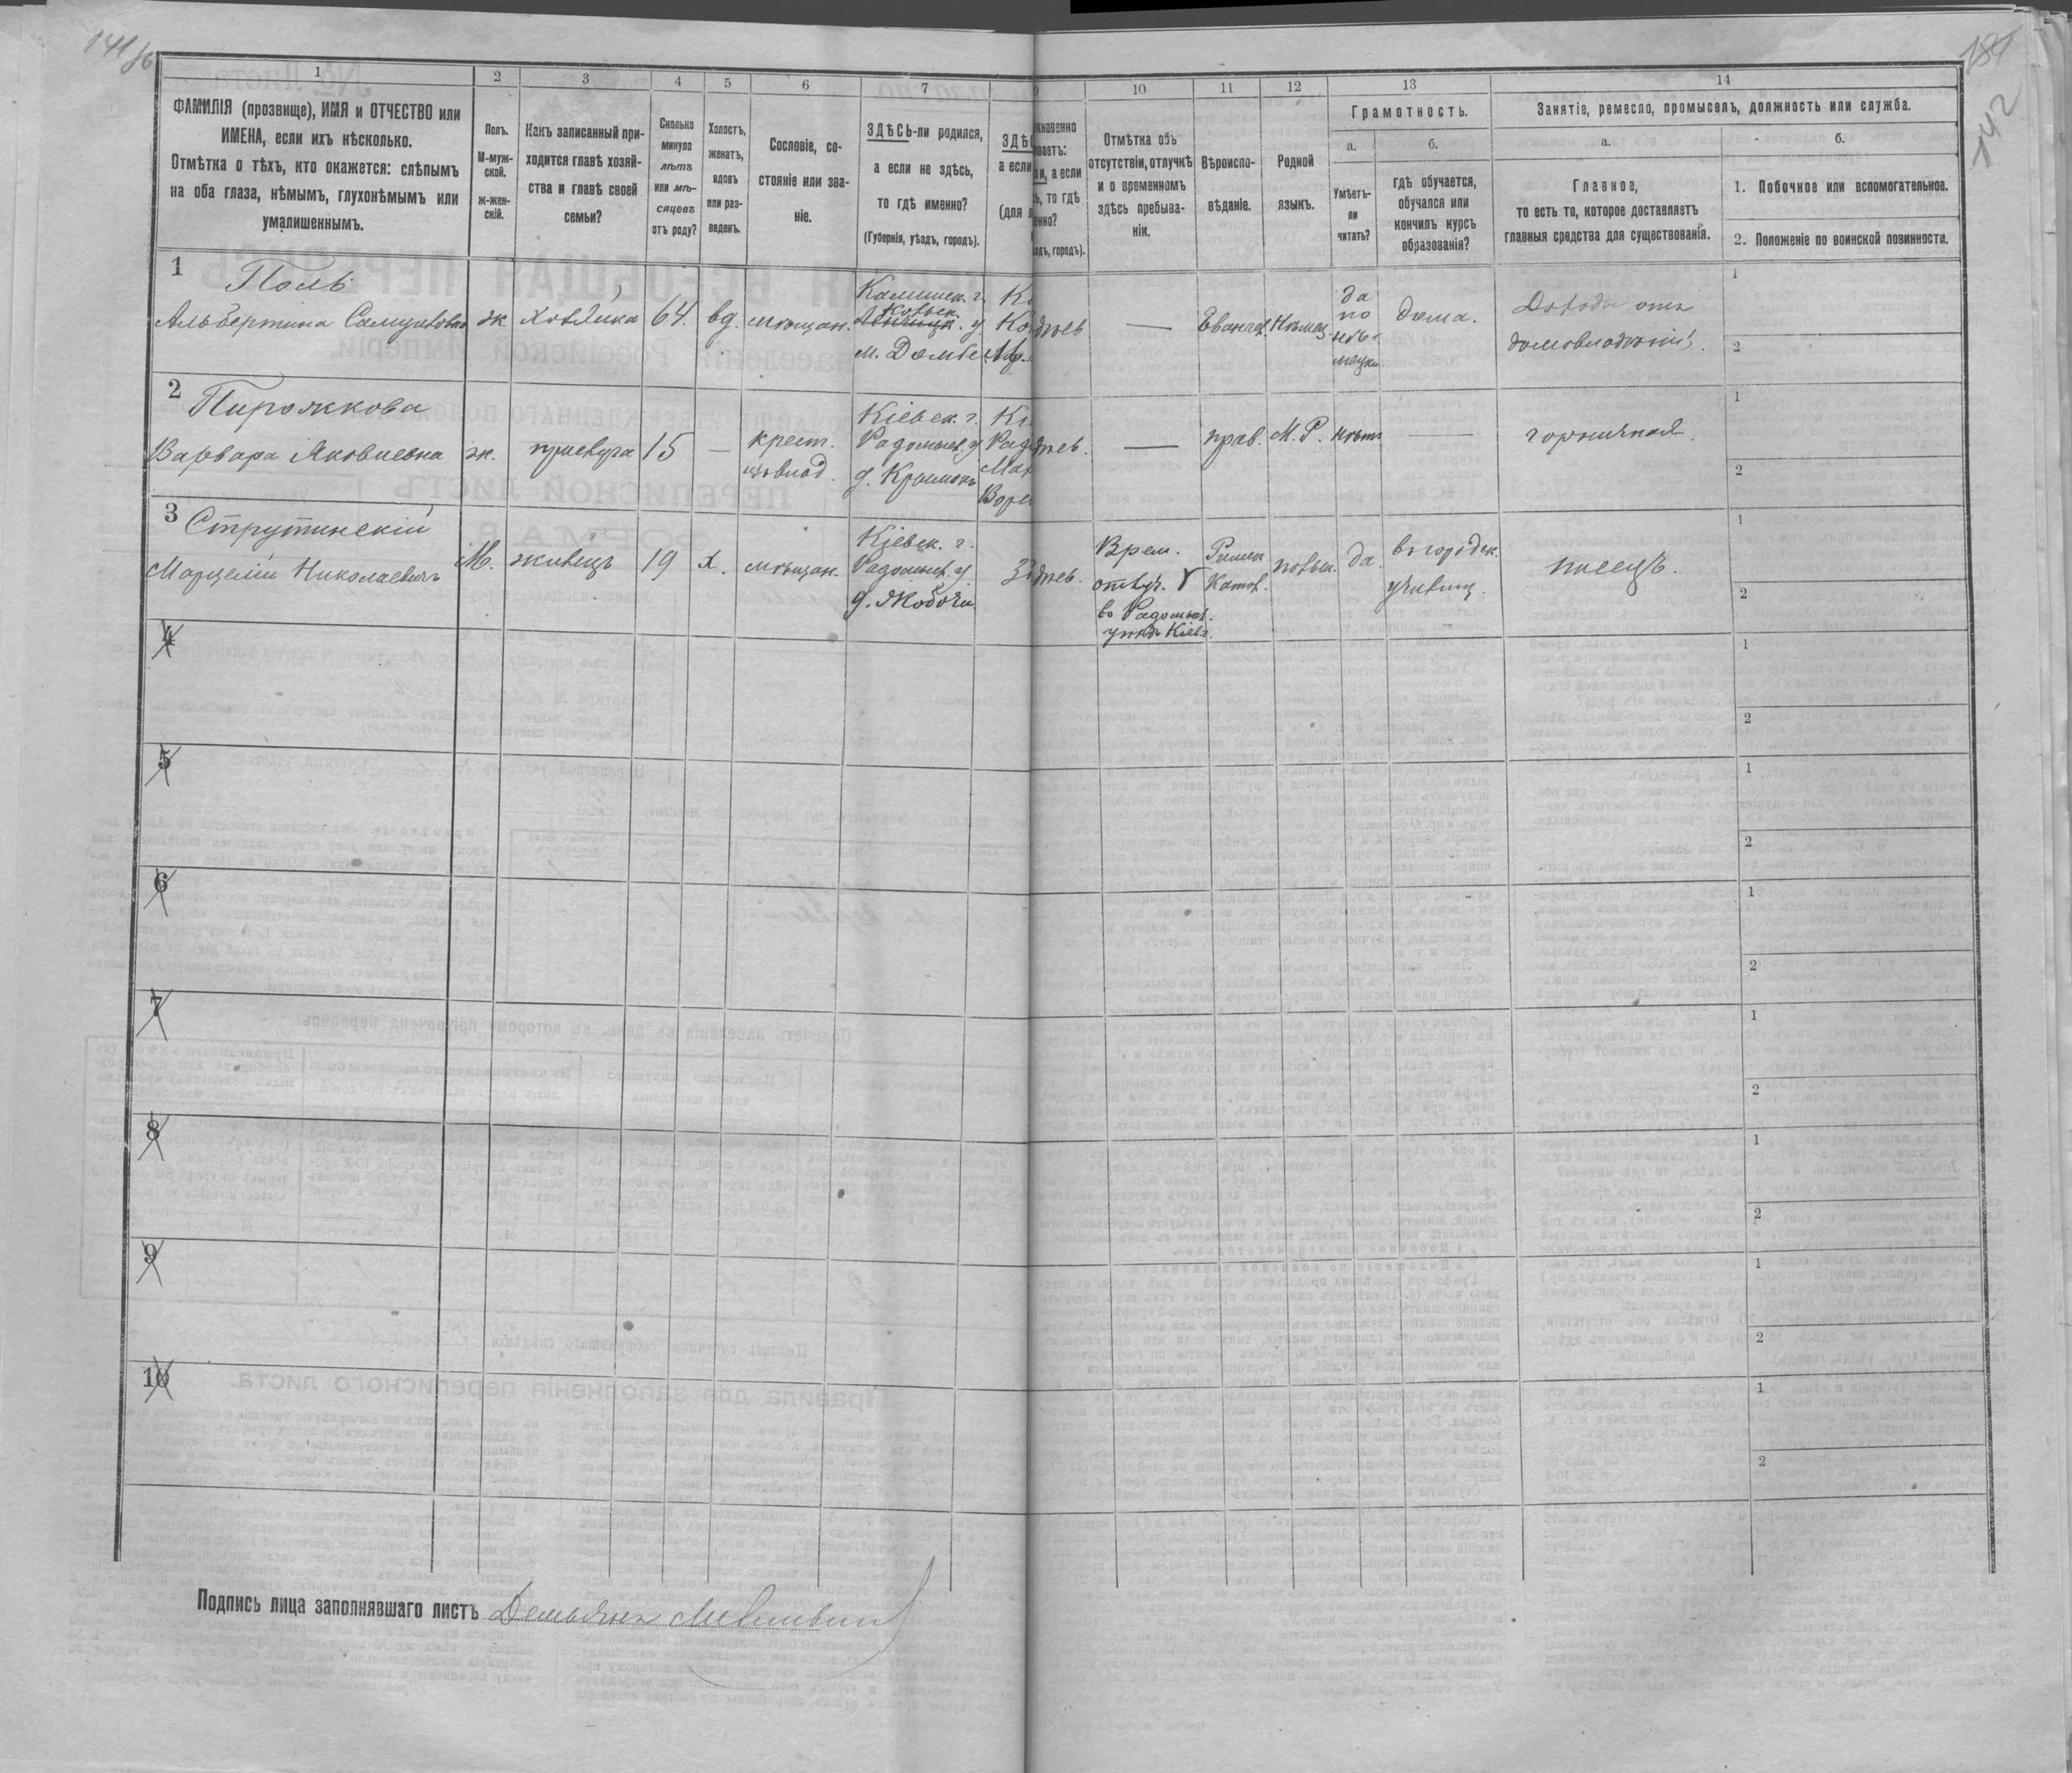 141 об
142
1
2
3
4
5
6
7
9
10
11
12
13
14
ФАМИЛІЯ (прозвище), ИМЯ и ОТЧЕСТВО или
ИМЕНА, если ихъ нѣсколько.
Отмѣтка о тѣхъ, кто окажется: слѣпымъ
на оба глаза, нѣмымъ, глухонѣмымъ или
умалишеннымъ.
Полъ.
М-муж-
ской.
ж-жен-
скій.
Какъ записанный при-
ходится главѣ хозяй-
ства и главѣ своей
семьи?
Сколько
минуло
лѣтъ
или мѣ-
сяцевъ
отъ роду?
Холостъ,
женатъ,
вдовъ
или раз-
веденъ.
Сословіе, со-
стояніе или зва-
ніе.
ЗДѢСЬ-ли родился,
а если не здѣсь,
то гдѣ именно?
(Губернія, уѣздъ, городъ).
ЗДѢС
а если
(для л
кновенно
ваетъ:
ли, а если
ь, то гдѣ
енно?
здъ, городъ).
Отмѣтка объ
отсутствіи, отлучкѣ
и о временномъ
здѣсь пребыва-
ніи.
Вѣроиспо-
вѣданіе.
Родной
языкъ.
Грамотность.
а.
Умѣетъ-
ли
читать?
б.
гдѣ обучается,
обучался или
кончилъ курсъ
образованія?
Занятіе, ремесло, промыселъ, должность или служба.
а.
Главное,
то есть то, которое доставляетъ
главныя средства для существованія.
б.
1. Побочное или вспомогательное.
2. Положеніе по воинской повинности.
1
Поль
Альбертина Самуиловна
ж
хозяйка
64.
вд.
мѣщан.
Калишск. г.
Кольск. у
м. Домбе
Евангел.
Нѣмец.
да
по
нѣ-
мецки
дома.
Доходы отъ
домовладѣній.
1
2
2
Пирожкова
Варвара Яковлевна
ж.
прислуга
15
—
крест.
изъ влад.
Кіевск. г.
Радомысл. у
д. Крымокъ
—
прав.
М. Р.
нѣтъ
—
горничная.
1
2
3
Струтинскій
Марцелій Николаевичъ
М.
жилецъ
19
х.
мѣщан.
Кіевск. г.
Радомысл. у.
Врем.
отлуч.
въ Радомысл.
уѣздъ Кіев г.
Римск
Катол.
польск.
да.
въ городск.
училищ.
писецъ.
1
2
4
1
2
5
1
2
6
1
2
7
1
2
8
1
2
9
1
2
10
1
2
Подпись лица заполнявшаго листъ